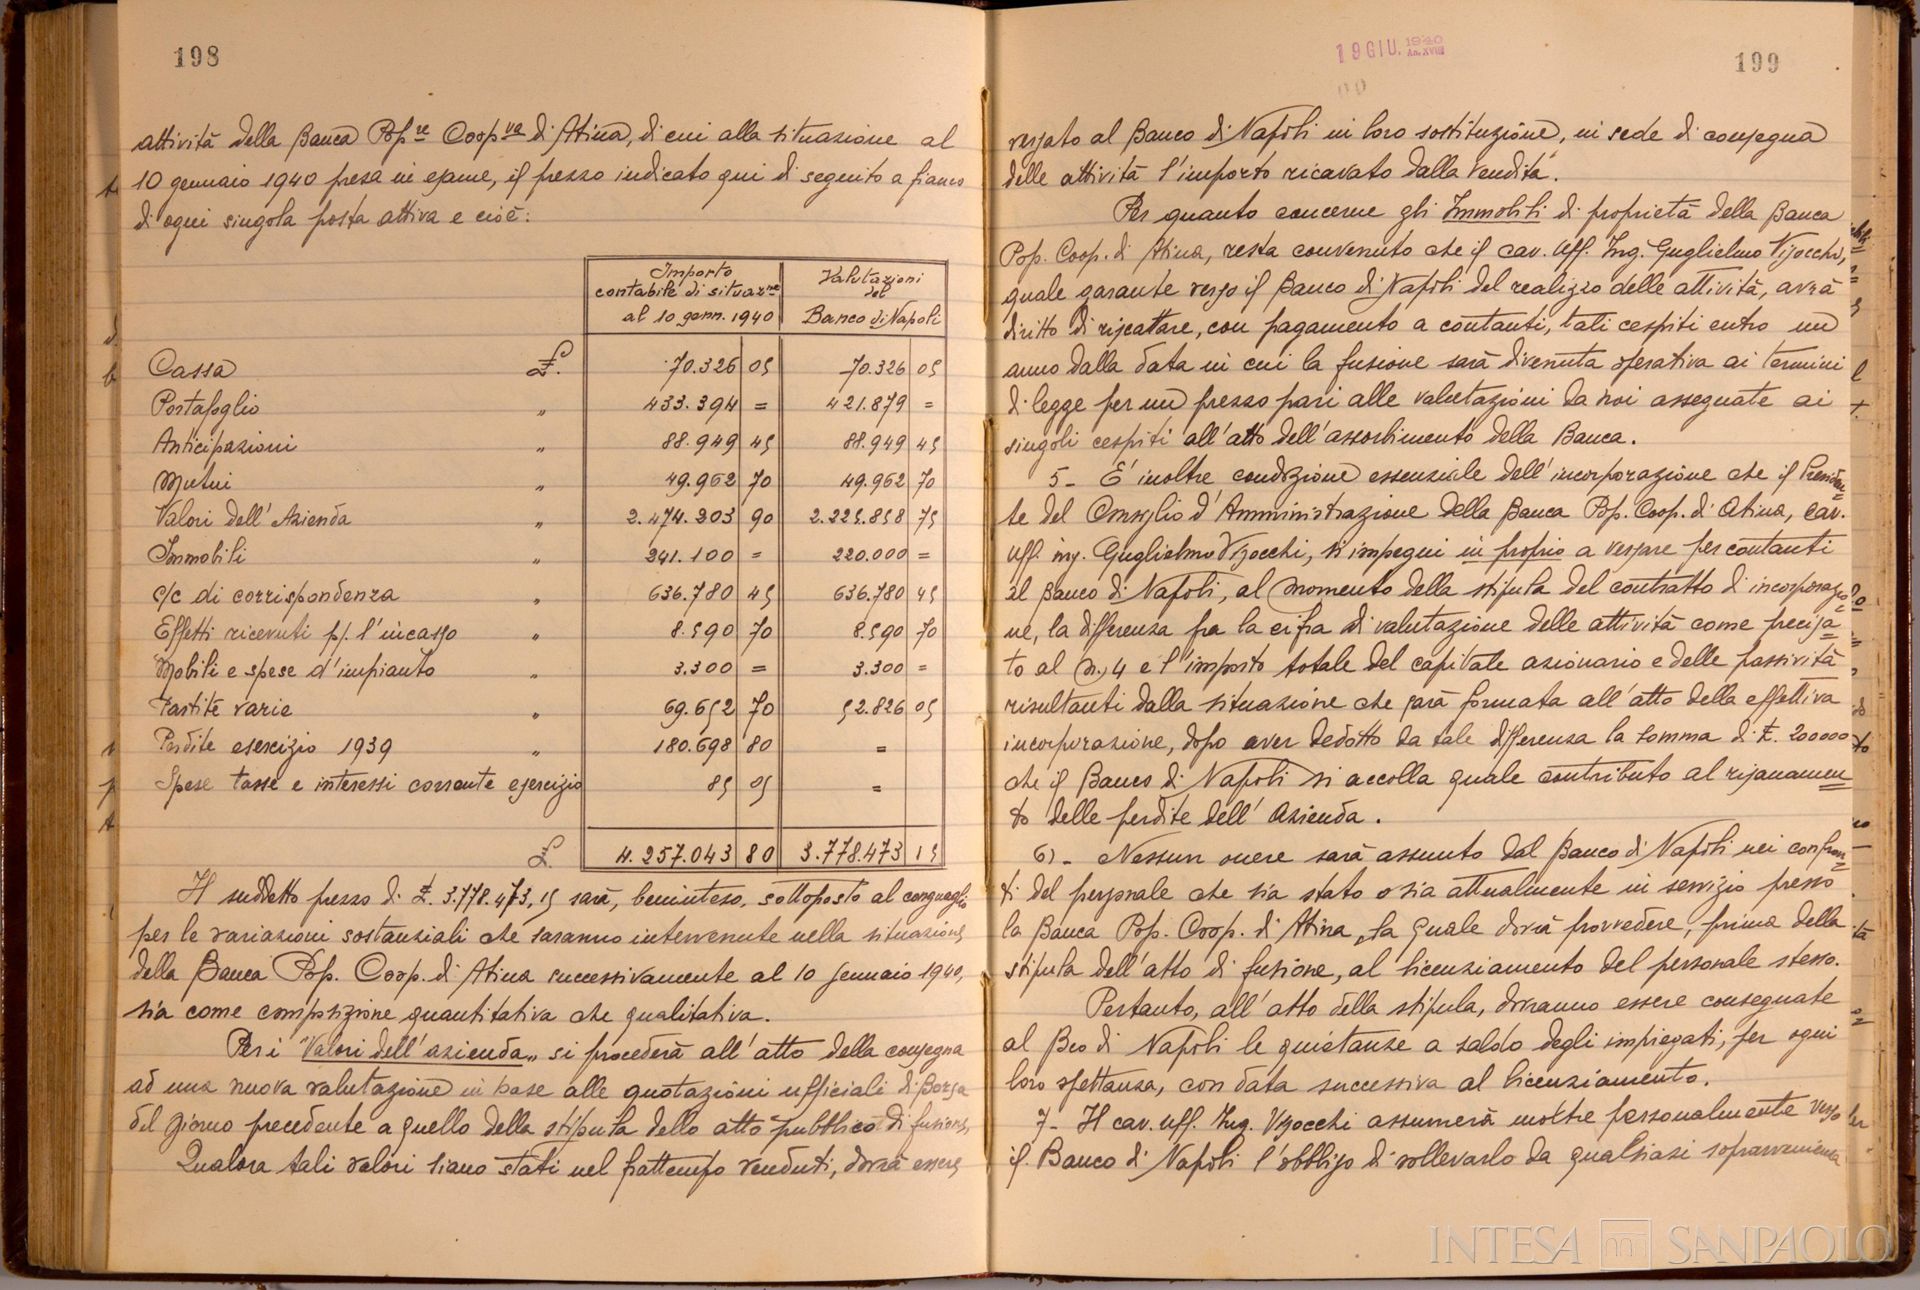 198
attività della Banca Pop.re Coop.va di Atina, di cui alla situazione al
10 gennaio 1940 presa in esame, il prezzo indicato qui di seguito a fianco
di ogni singola posta attiva e cioè:
Importo contabile di situaz.ne al 10 genn. 1940 | Valutazioni del Banco di Napoli
Cassa £. 70.326 05 70.326 05
Portafoglio " 433.394 = 421.879 =
Anticipazioni " 88.949 45 88.949 45
Mutui " 49.962 70 49.962 70
Valori dell'Azienda " 2.474.203 90 2.225.858 75
Immobili " 241.100 = 220.000 =
c/c di corrispondenza " 636.780 45 636.780 45
Effetti ricevuti p/. l'incasso " 8.590 70 8.590 70
Mobili e spese d'impianto " 3.300 = 3.300 =
Partite varie " 69.652 70 52.826 05
Perdite esercizio 1939 " 180.698 80 =
Spese tasse e interessi corrente esercizio 85 05 =
£. 4.257.043 80 3.778.473 15
Il suddetto prezzo di £. 3.778.473,15 sarà, beninteso, sottoposto al conguaglio
per le variazioni sostanziali che saranno intervenute nella situazione
della Banca Pop. Coop. di Atina successivamente al 10 gennaio 1940,
sia come composizione quantitativa che qualitativa.
Per i "Valori dell'azienda" si procederà all'atto della consegna
ad una nuova valutazione in base alle quotazioni ufficiali di Borsa
del giorno precedente a quello della stipula dello atto pubblico di fusione,
Qualora tali valori siano stati nel frattempo venduti, dovrà essere
19 GIU. 1940 An. XVIII
199
versato al Banco di Napoli in loro sostituzione, in sede di consegna
delle attività l'importo ricavato dalla vendita.
Per quanto concerne gli Immobili di proprietà della Banca
Pop. Coop. di Atina, resta convenuto che il cav. Uff. Ing. Guglielmo Visocchi,
quale garante verso il Banco di Napoli del realizzo delle attività, avrà
diritto di riscattare, con pagamento a contanti, tali cespiti entro un
anno dalla data in cui la fusione sarà divenuta operativa ai termini
di legge per un prezzo pari alle valutazioni da noi assegnate ai
singoli cespiti all'atto dell'assorbimento della Banca.
5- E' inoltre condizione essenziale dell'incorporazione che il Presiden=
te del Consiglio d'Amministrazione della Banca Pop. Coop. di Atina, cav.
uff. ing. Guglielmo Visocchi, si impegni in proprio a versare per contanti
al Banco di Napoli, al momento della stipula del contratto di incorporazio=
ne, la differenza fra la cifra di valutazione delle attività come precisa=
to al n. 4 e l'importo totale del capitale azionario e delle passività
risultanti dalla situazione che sarà formata all'atto della effettiva
incorporazione, dopo aver dedotto da tale differenza la somma di £. 200000
che il Banco di Napoli si accolla quale contributo al risanamen=
to delle perdite dell'Azienda.
6)- Nessun onere sarà assunto dal Banco di Napoli nei confron=
ti del personale che sia stato o sia attualmente in servizio presso
la Banca Pop. Coop. di Atina, la quale dovrà provvedere, prima della
stipula dell'atto di fusione, al licenziamento del personale stesso.
Pertanto, all'atto della stipula, dovranno essere consegnate
al Bco di Napoli le quietanze a saldo degli impiegati, per ogni
loro spettanza, con data successiva al licenziamento.
7- Il cav. uff. Ing. Visocchi assumerà inoltre personalmente verso
il Banco di Napoli l'obbligo di sollevarlo da qualsiasi sopravvenienza
INTESA SANPAOLO